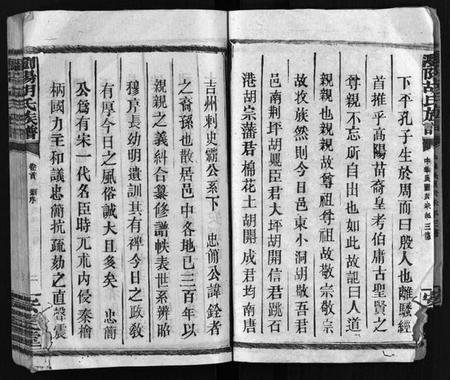 下平孔子生於周而曰殷人也離騷經
首推乎高陽苗裔皇考伯庸古聖賢之
尊親不忘所自出也如此故記曰人道
親親也親親故尊祖尊祖故敬宗敬宗
故收族然則今日邑東小洞胡敬吾君
邑南荆坪胡甄臣君大坪胡開信君跳石
港胡宗藩君棉花土胡開成君均南唐
吉州刺史霸公系下 忠簡公諱銓者
之裔孫也散居邑中各地已三百年以
親親之義糾合纂修譜帙表世系辨昭
穆序長幼明遺訓其有裨今日之政教
有厚今日之風俗誠大且多矣 忠簡
公爲有宋一代名臣時兀朮內侵秦檜
柄國力主和議忠簡抗疏劾之直聲震
瀏陽胡氏族譜
卷首 序